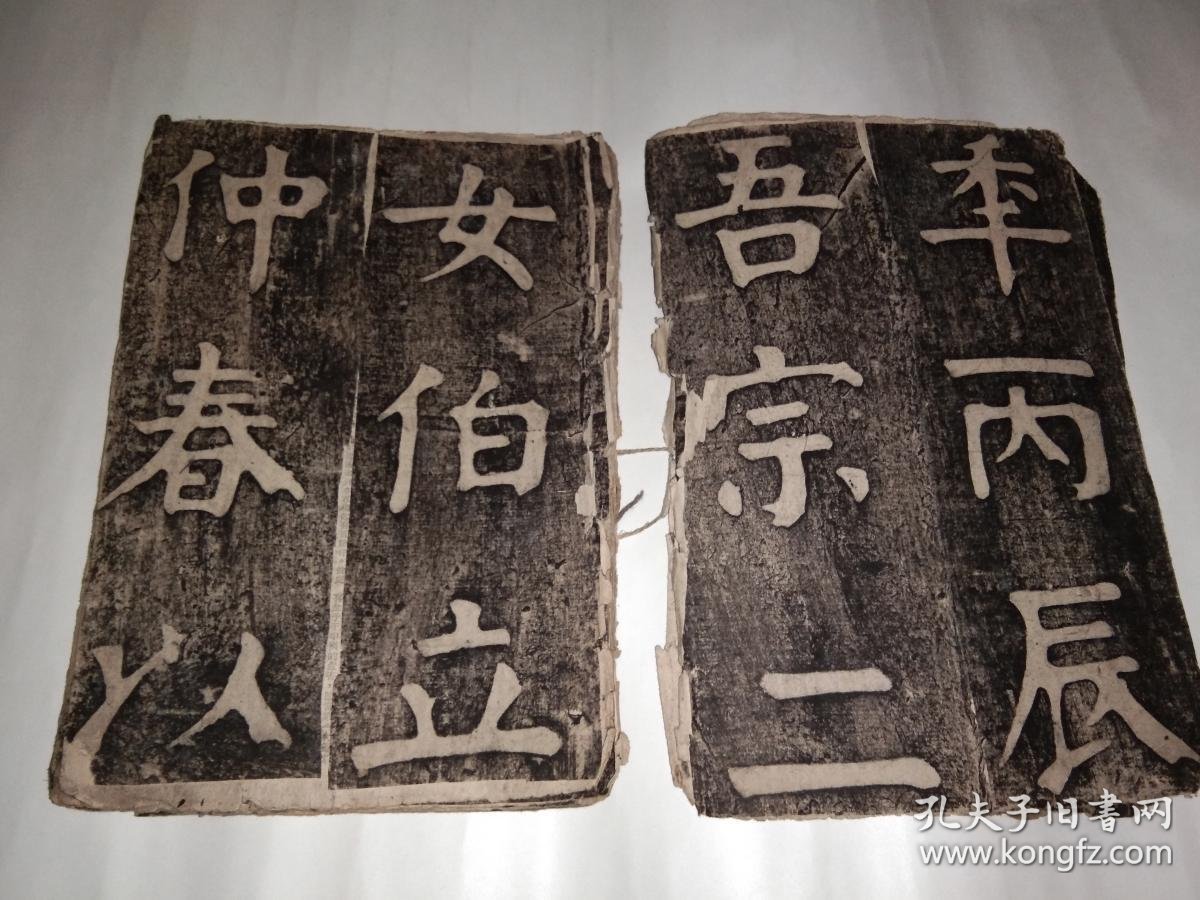 年丙辰
吾宗二
女伯立
仲春以
孔夫子旧書网
www.kongfz.com